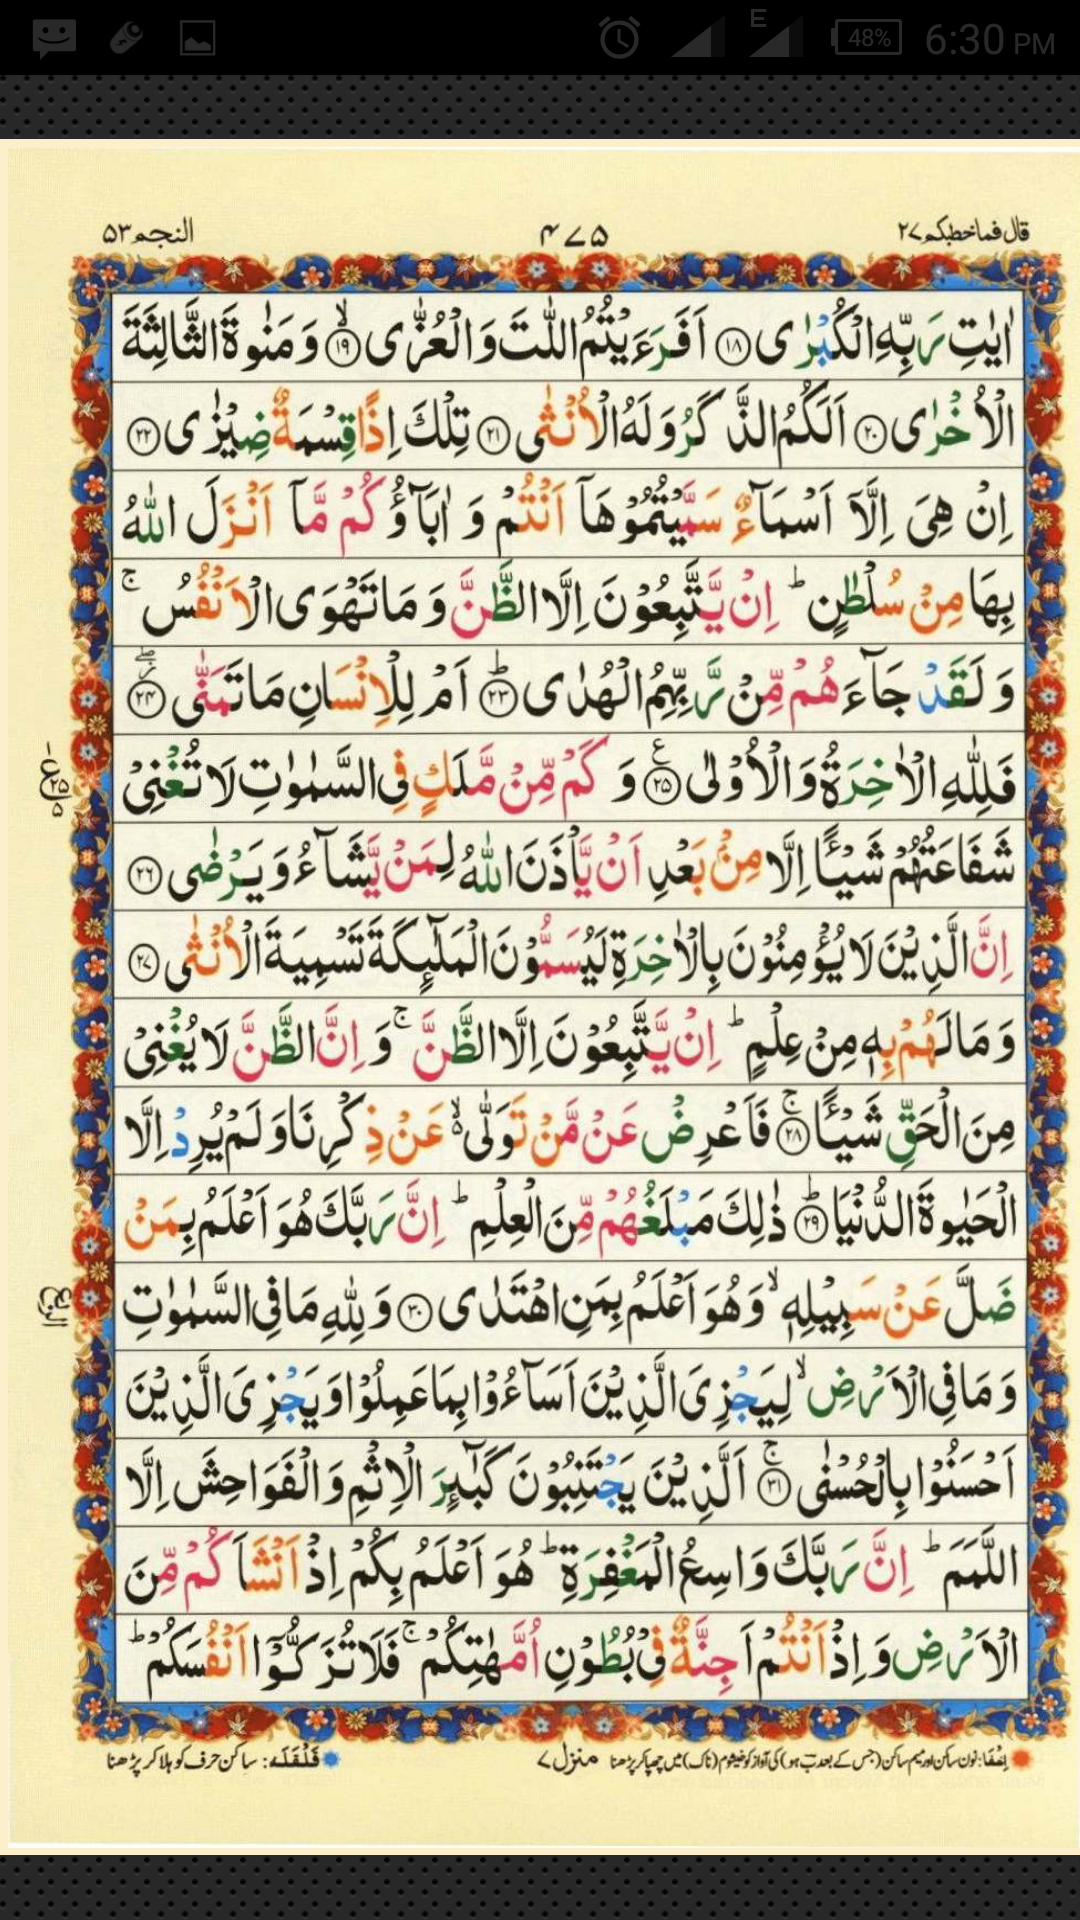 E
48%
6:30 PM
قال فما خطبكم ۲۷
۴۷۵
النجم ۵۳
اٰيٰتِ رَبِّهِ الْكُبْرٰى ۱۸ اَفَرَءَيْتُمُ اللّٰتَ وَالْعُزّٰى ۙ ۱۹ وَمَنٰوةَ الثَّالِثَةَ
الْاُخْرٰى ۲۰ اَلَكُمُ الذَّكَرُ وَلَهُ الْاُنْثٰى ۲۱ تِلْكَ اِذًا قِسْمَةٌ ضِيْزٰى ۲۲
اِنْ هِىَ اِلَّاۤ اَسْمَآءٌ سَمَّيْتُمُوْهَاۤ اَنْتُمْ وَ اٰبَآؤُكُمْ مَّاۤ اَنْزَلَ اللّٰهُ
بِهَا مِنْ سُلْطٰنٍ ؕ اِنْ يَّتَّبِعُوْنَ اِلَّا الظَّنَّ وَ مَا تَهْوَى الْاَنْفُسُ ۚ
وَ لَقَدْ جَآءَهُمْ مِّنْ رَّبِّهِمُ الْهُدٰى ؕ ۲۳ اَمْ لِلْاِنْسَانِ مَا تَمَنّٰى ۲۴
فَلِلّٰهِ الْاٰخِرَةُ وَالْاُوْلٰى ۲۵ وَ كَمْ مِّنْ مَّلَكٍ فِى السَّمٰوٰتِ لَا تُغْنِىْ
شَفَاعَتُهُمْ شَيْـًٔا اِلَّا مِنْۢ بَعْدِ اَنْ يَّاْذَنَ اللّٰهُ لِمَنْ يَّشَآءُ وَ يَرْضٰى ۲۶
اِنَّ الَّذِيْنَ لَا يُؤْمِنُوْنَ بِالْاٰخِرَةِ لَيُسَمُّوْنَ الْمَلٰٓئِكَةَ تَسْمِيَةَ الْاُنْثٰى ۲۷
وَ مَا لَهُمْ بِهٖ مِنْ عِلْمٍ ؕ اِنْ يَّتَّبِعُوْنَ اِلَّا الظَّنَّ ۚ وَ اِنَّ الظَّنَّ لَا يُغْنِىْ
مِنَ الْحَقِّ شَيْـًٔا ۚ ۲۸ فَاَعْرِضْ عَنْ مَّنْ تَوَلّٰى ۙ عَنْ ذِكْرِنَا وَلَمْ يُرِدْ اِلَّا
الْحَيٰوةَ الدُّنْيَا ؕ ۲۹ ذٰلِكَ مَبْلَغُهُمْ مِّنَ الْعِلْمِ ؕ اِنَّ رَبَّكَ هُوَ اَعْلَمُ بِمَنْ
ضَلَّ عَنْ سَبِيْلِهٖ ۙ وَهُوَ اَعْلَمُ بِمَنِ اهْتَدٰى ۳۰ وَ لِلّٰهِ مَا فِى السَّمٰوٰتِ
وَ مَا فِى الْاَرْضِ ۙ لِيَجْزِىَ الَّذِيْنَ اَسَآءُوْا بِمَا عَمِلُوْا وَ يَجْزِىَ الَّذِيْنَ
اَحْسَنُوْا بِالْحُسْنٰى ۚ ۳۱ اَلَّذِيْنَ يَجْتَنِبُوْنَ كَبٰٓئِرَ الْاِثْمِ وَالْفَوَاحِشَ اِلَّا
اللَّمَمَ ؕ اِنَّ رَبَّكَ وَاسِعُ الْمَغْفِرَةِ ؕ هُوَ اَعْلَمُ بِكُمْ اِذْ اَنْشَاَكُمْ مِّنَ
الْاَرْضِ وَ اِذْ اَنْتُمْ اَجِنَّةٌ فِىْ بُطُوْنِ اُمَّهٰتِكُمْ ۚ فَلَا تُزَكُّوْۤا اَنْفُسَكُمْ ؕ
ع ۲۵ ۵
الربع
اِخفَا: نون ساکن اور میم ساکن (جس کے بعد بَ ہو) کی آواز کو خیشوم (ناک) میں چھپا کر پڑھنا
منزل ۷
قَلْقَلَه: ساکن حرف کو ہلا کر پڑھنا